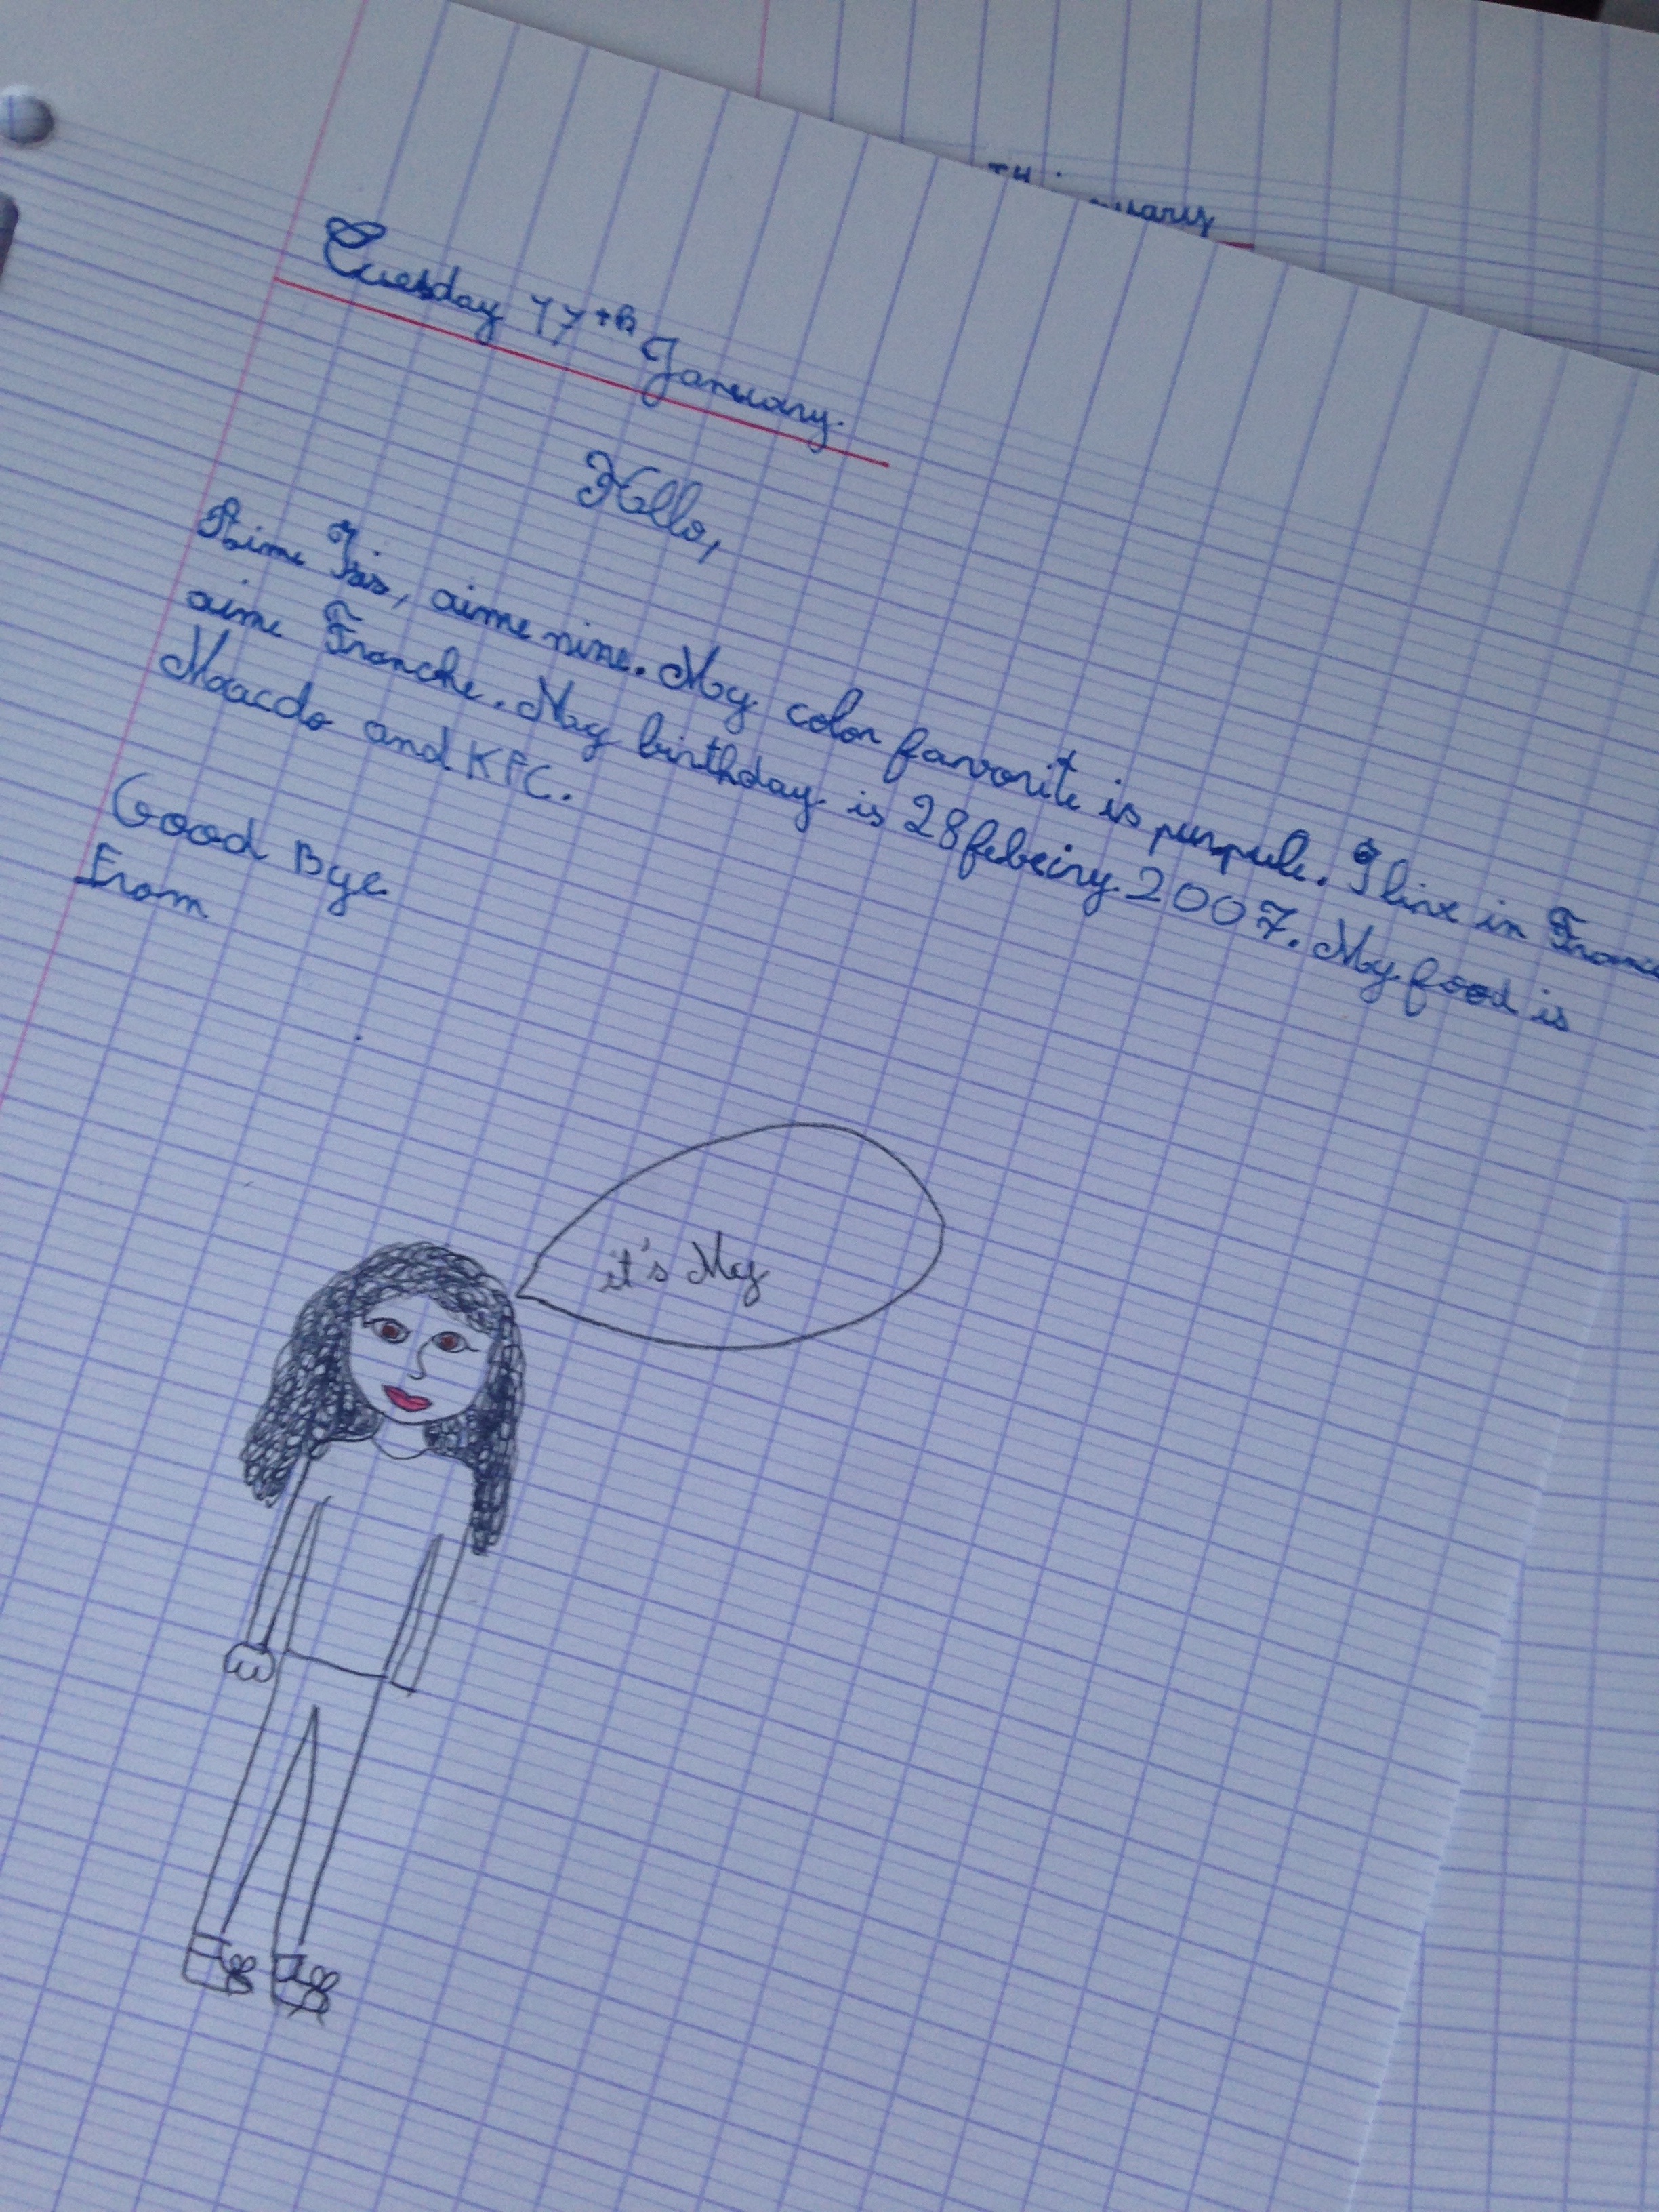 TH
uary
Tuesday 17th January.
Hello,
Aime Isis, aime nine. My color favorite is purpule. I live in France
aime Franche. My birthday is 28 febeiry 2007. My food is
Macdo and KFC.
Good Bye
From
it's My